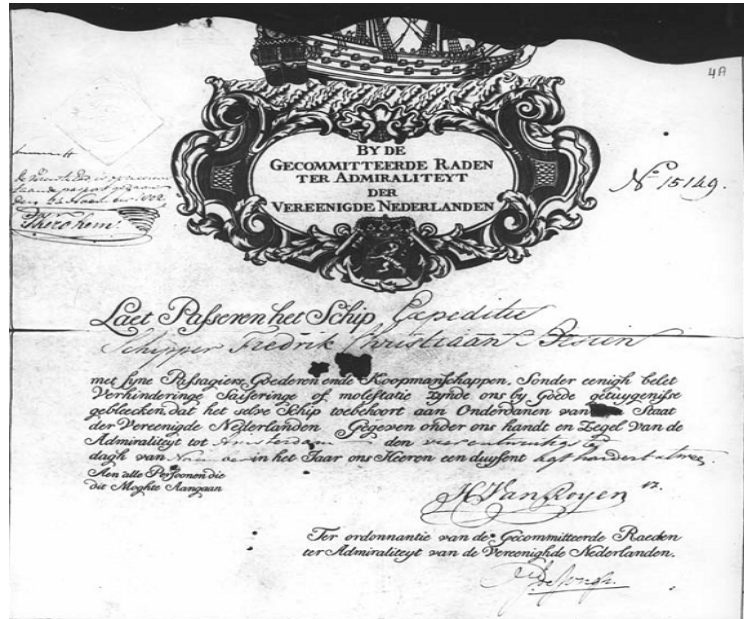 4A
BY DE
GECOMMITTEERDE RADEN
TER ADMIRALITEYT
DER
VEREENIGDE NEDERLANDEN
No. 15149.
Thershem
Laet Passeren het Schip Expeditie
Schipper Fredrik Christiaan
met syne Passagiers, Goederen ende Koopmanschappen, Sonder eenigh belet
Verhinderinge Saiseringe of molestatie zynde ons by Goede getuygenisse
gebleecken, dat het selve Schip toebehoort aan Onderdanen van Staat
der Vereenigde Nederlanden Gegeven onder ons handt en Zegel Van de
Admiraliteyt tot Amsterdam den vier en twintig
dagh van in het Jaar ons Heeren een duysent agt hondert twee
Aen alle Persoonen die
dit Moghte Aangaan
H Van Royen
Ter ordonnantie van de Gecommitteerde Raeden
ter Admiraliteyt van de Vereenighde Nederlanden.
de Jongh.